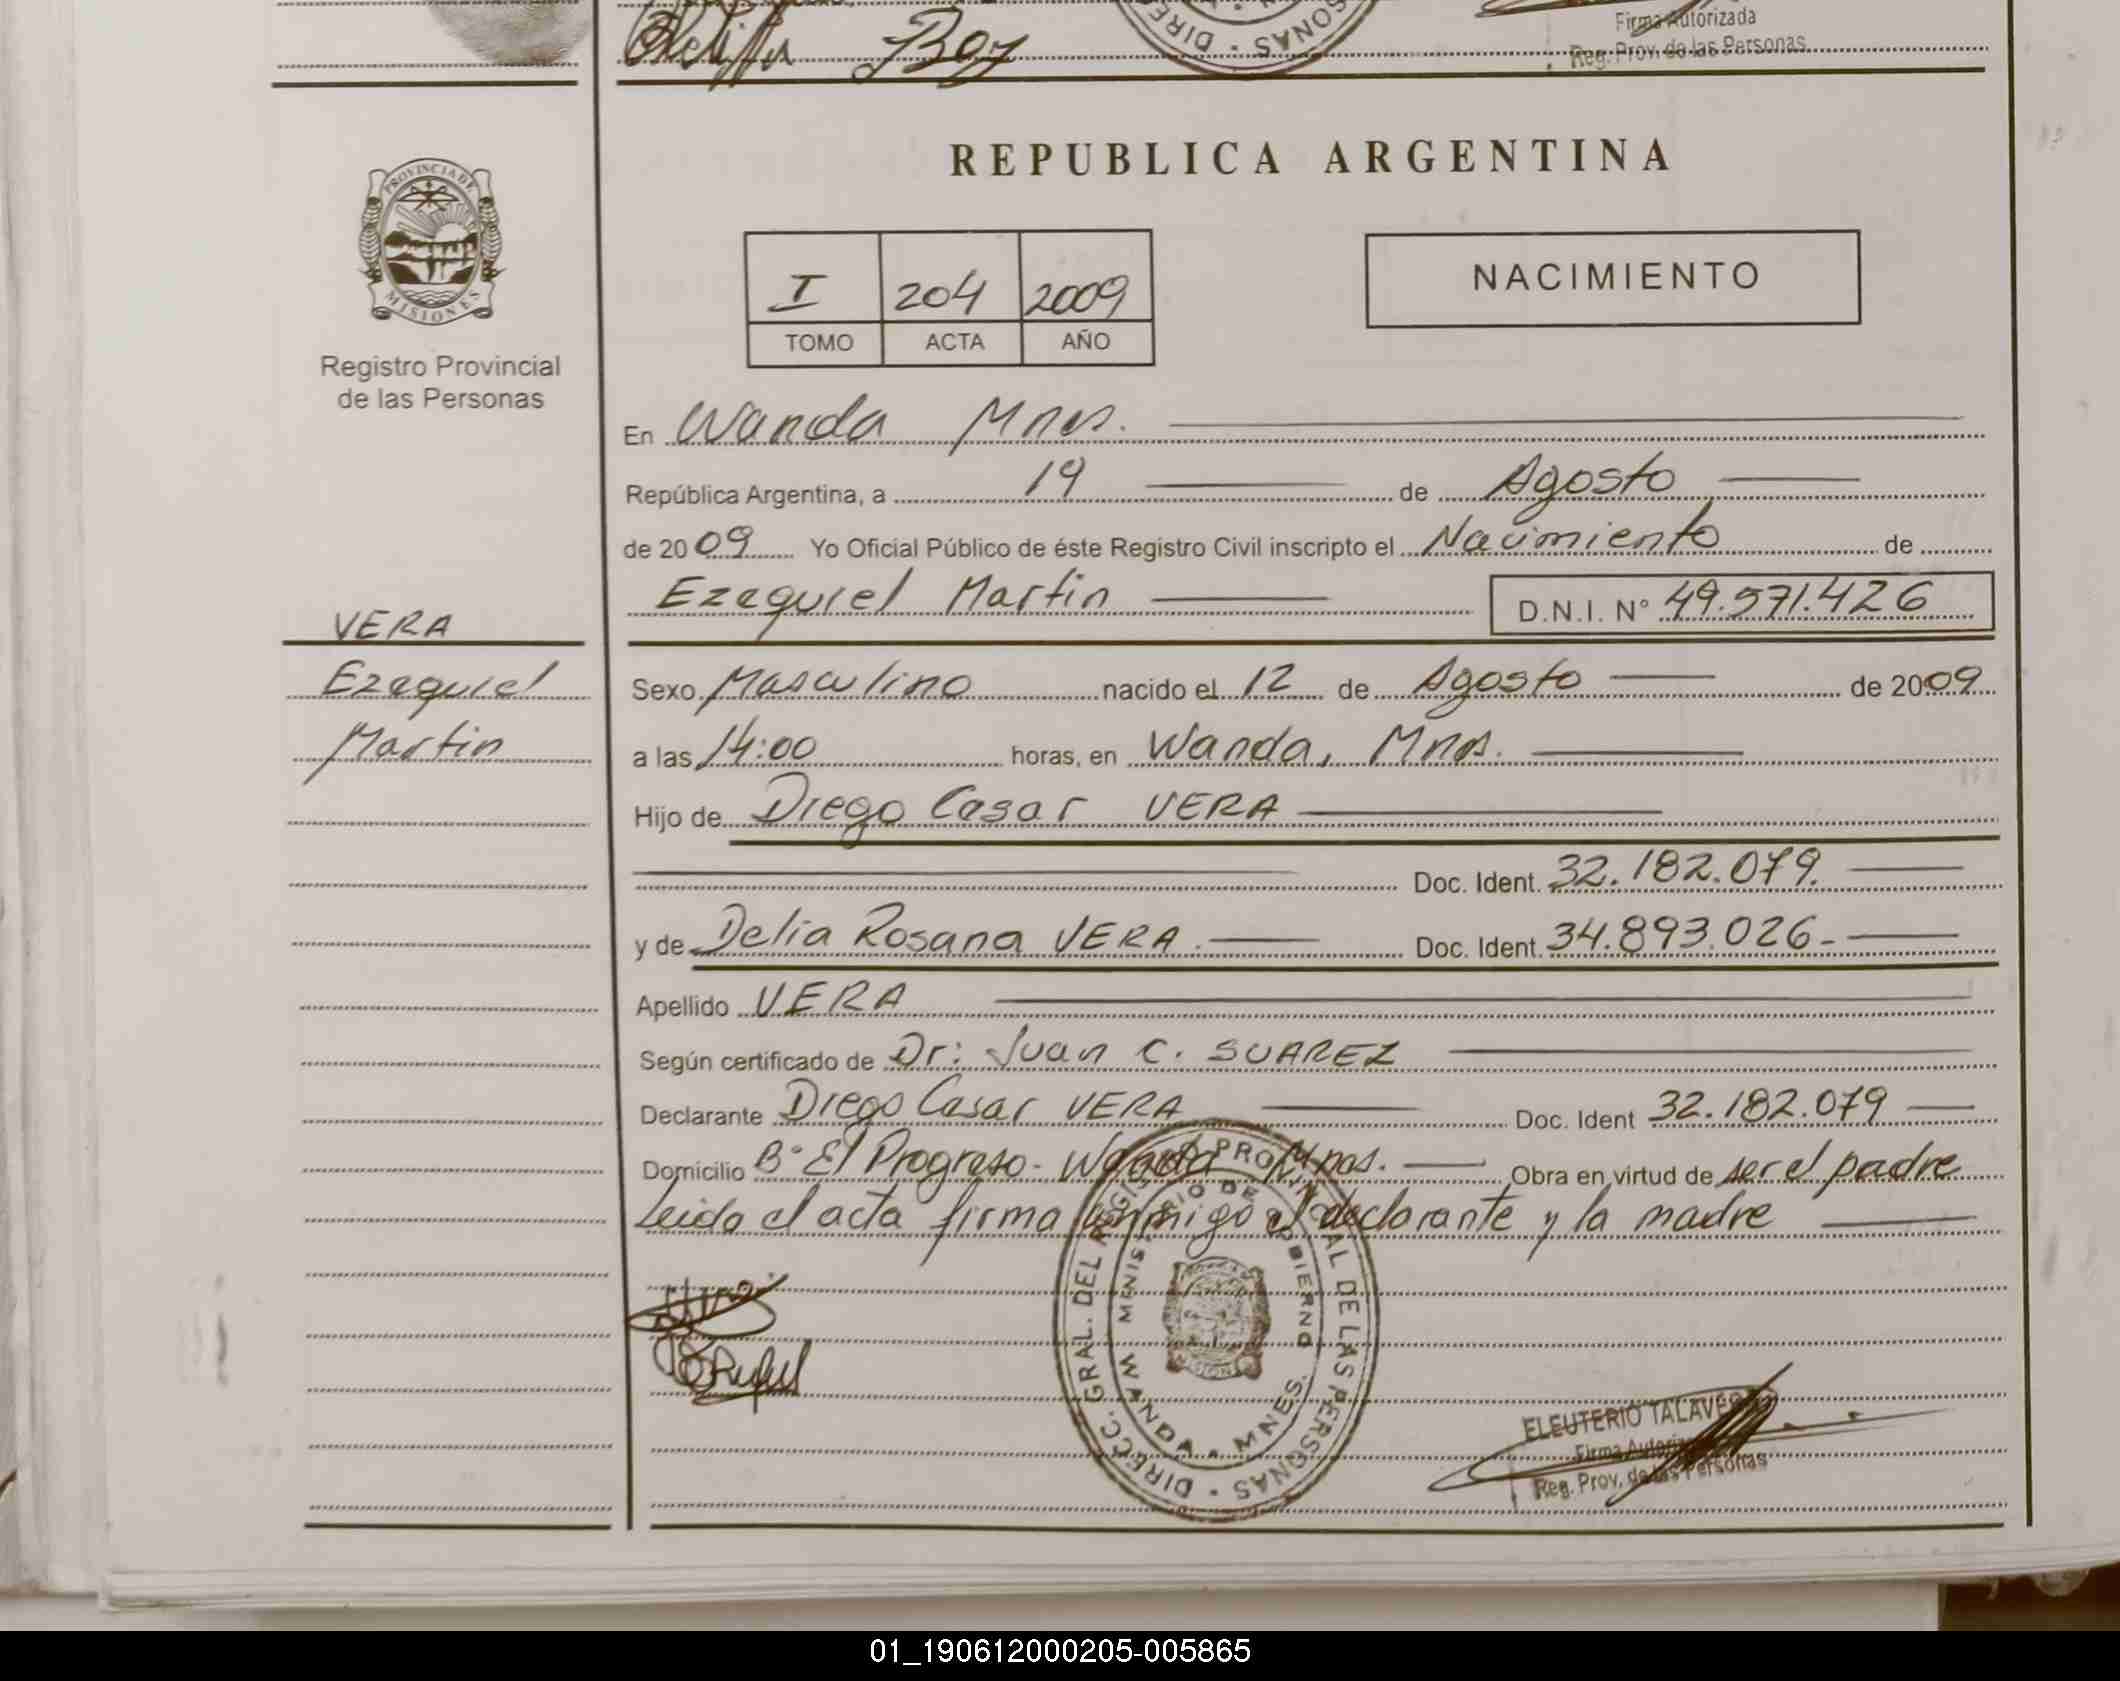 Firma Autorizada
Reg. Prov. de las Personas
DIRE · SONAS
PROVINCIA DE
MISIONES
Registro Provincial
de las Personas
REPUBLICA ARGENTINA
I 204 2009
TOMO ACTA AÑO
NACIMIENTO
En Wanda Mnes.
República Argentina, a 19 de Agosto
de 2009 Yo Oficial Público de éste Registro Civil inscripto el Nacimiento de
Ezequiel Martin D.N.I. N° 49.571.426
VERA
Ezequiel
Martin
Sexo Masculino nacido el 12 de Agosto de 2009
a las 14:00 horas, en Wanda, Mnes.
Hijo de Diego Cesar VERA
Doc. Ident. 32.182.079.
y de Delia Rosana VERA. Doc. Ident. 34.893.026-
Apellido VERA
Según certificado de Dr: Juan C. SUAREZ
Declarante Diego Cesar VERA Doc. Ident 32.182.079
Domicilio B° El Progreso- Wanda Mnes. Obra en virtud de ser el padre
Leida el acta firma conmigo el declarante y la madre
DIRECC. GRAL. DEL REGISTRO PROVINCIAL DE LAS PERSONAS
MINISTERIO DE GOBIERNO
WANDA - MNES.
ELEUTERIO TALAVERA
Firma Autorizada
Reg. Prov. de las Personas
01_190612000205-005865